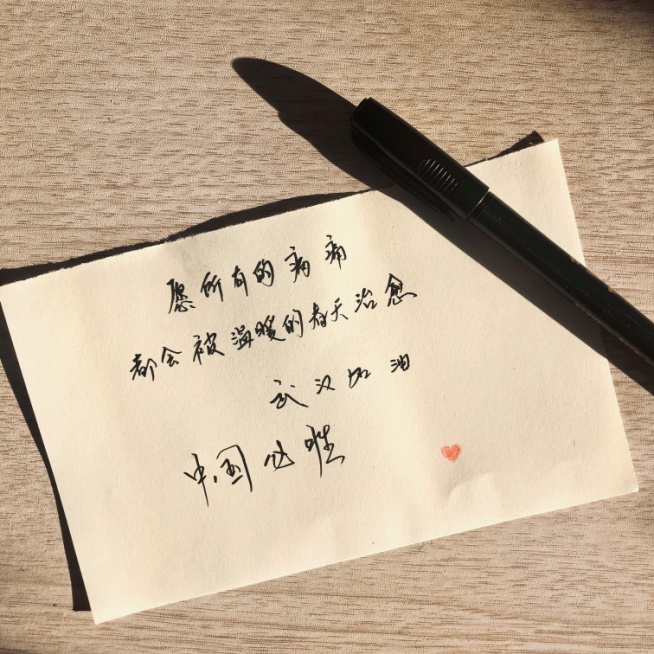 愿所有的病痛
都会被温暖的春天治愈
武汉加油
中国必胜